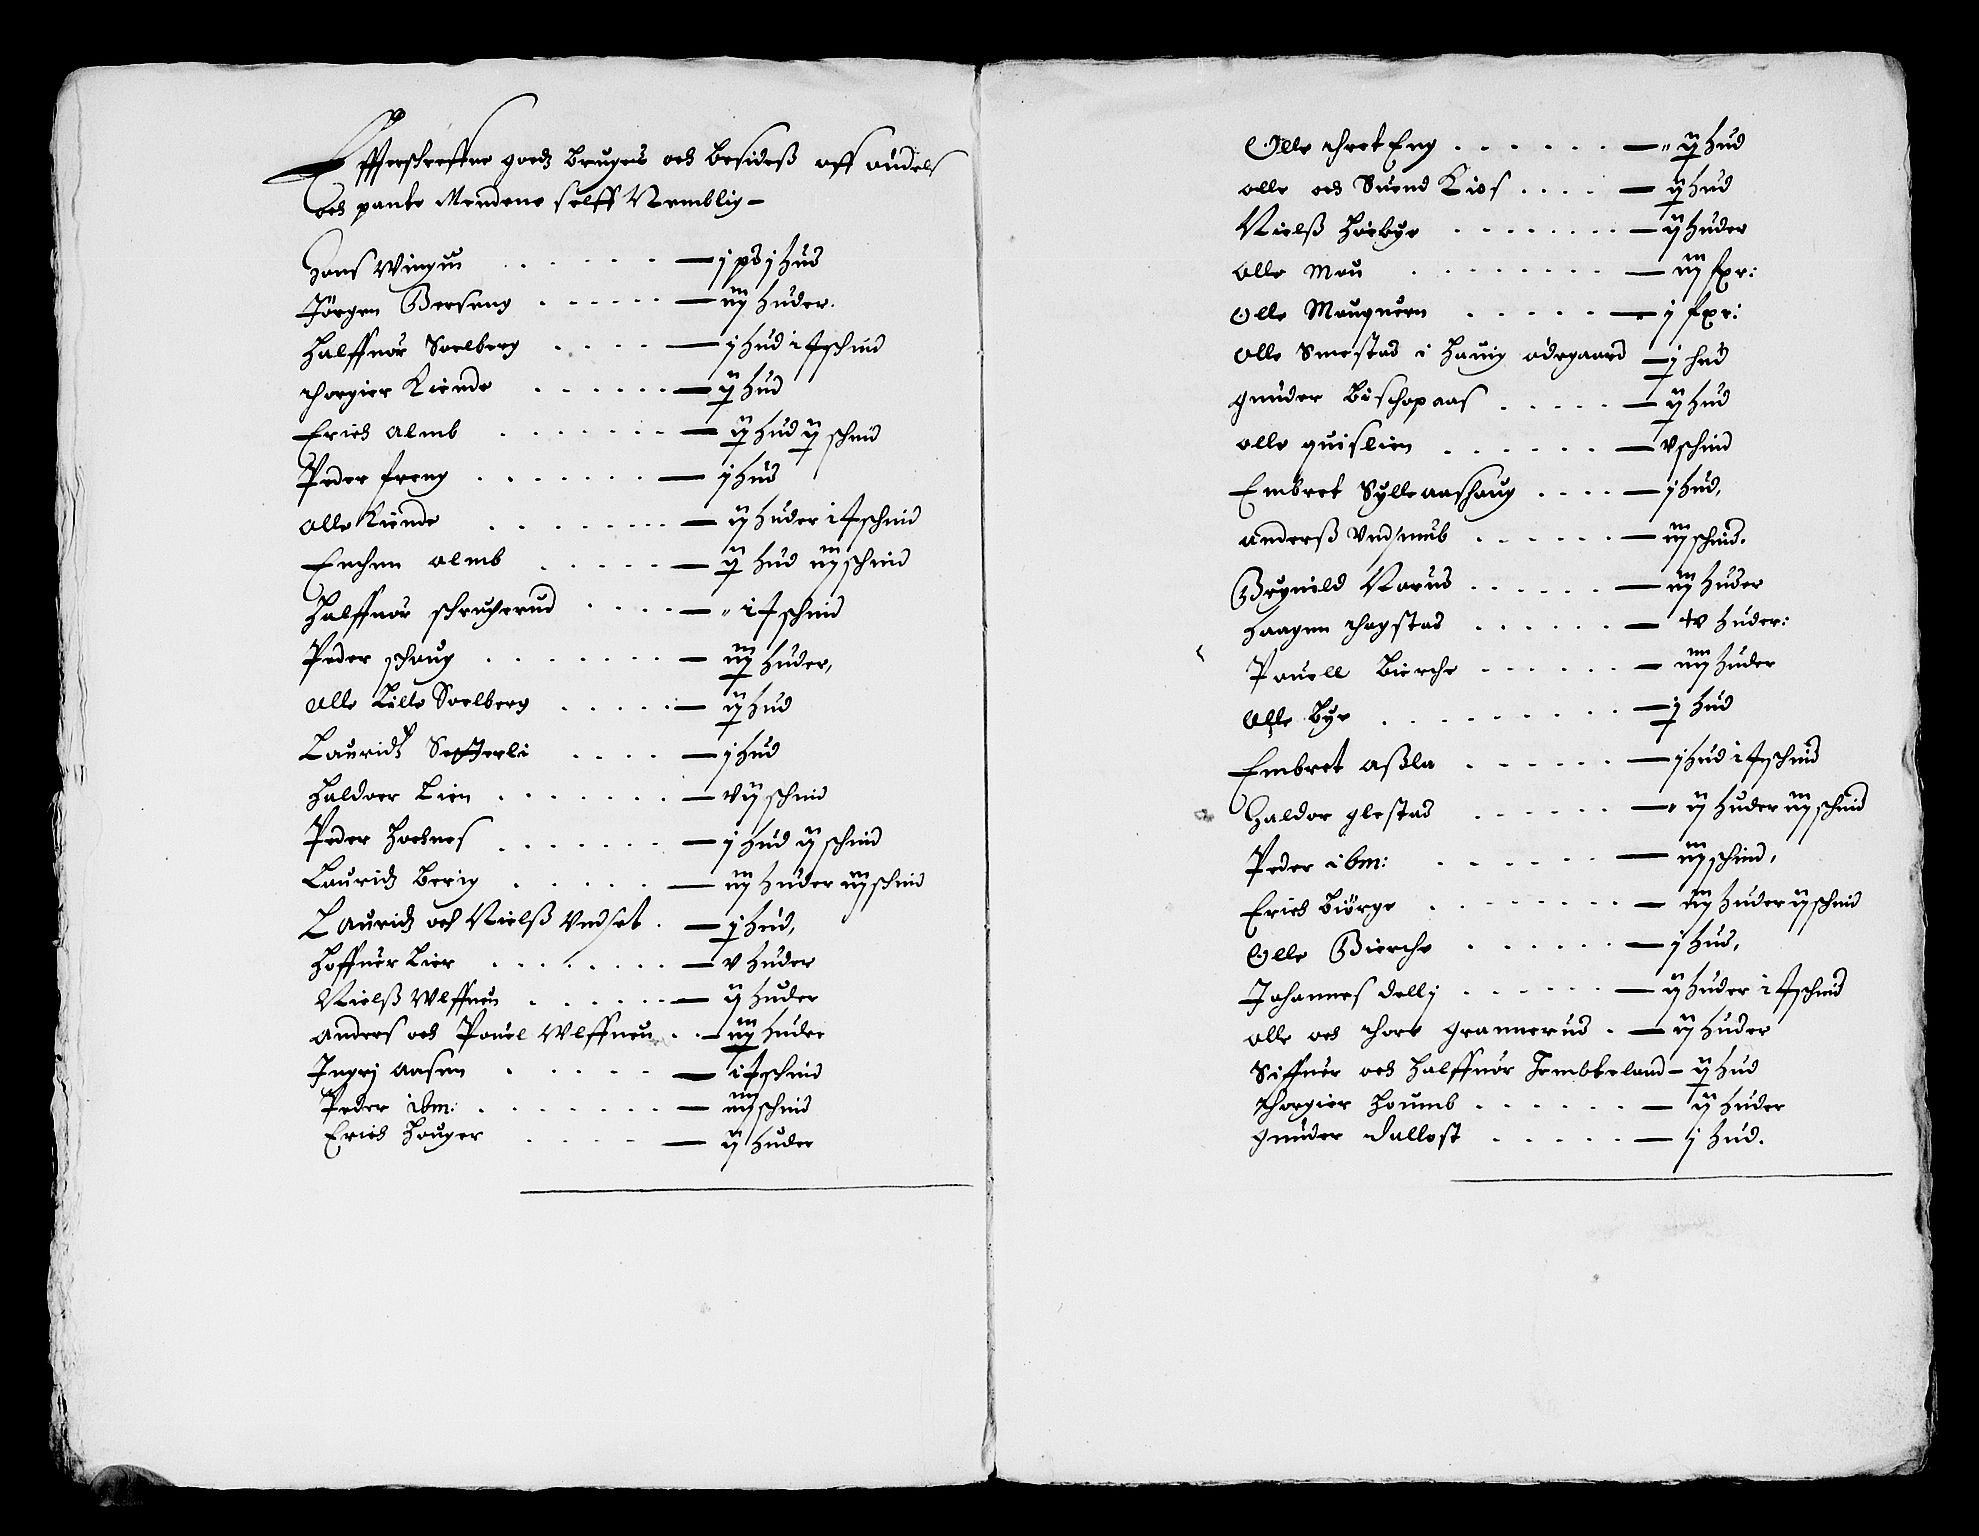 Effterschreffne goeds bruges och besidess aff Odels
och pante Mendene selff Nemblig –
Hans Wingm . . . . . — j pd j Hud
Jörgen Berseng . . . . . — iij Huder.
Halffuor Soelberg . . . . — j Hud i f schind
Thorgier Kiende . . . . . — ij Hud
Erich Almb . . . . . . — ij Hud ij schind
Peder freng . . . . . . — j Hud
Olle Kiende . . . . . . — ij Huder i f schind
Enchen Almb . . . . . — ij Hud iij schind
Halffuor schrugerud . . . . — i f schind
Peder schaug . . . . . . — iij Huder,
Olle Lille Soelberg . . . . . — ij Hud
Lauridtz Setterli . . . . — j Hud
Haldoer Lien . . . . . . — vij schind
Peder Hoches . . . . . . — j Hud ij schind
Lauridz Berig . . . . . — iij Huder iij schind
Lauridz och Nielss Vndset . — j Hud,
Hoffuer Lier . . . . . . — v Huder
Nielss Wlffuen . . . . . — ij Huder
Anders och Pouel Wlffuen . . — iij Huder
Ingrj Aasen . . . . . — i f schind
Peder ibm: . . . . . . — iiij schind
Erich Houger . . . . — ij Huder
Olle thret Eng . . . . . . — ij Hud
Olle och Suend Kios . . . . — ij Hud
Nielss Hoebye . . . . . . — ij Huder
Olle Mou . . . . . . — iij fxr:
Olle Mouguern . . . . . — j fxr:
Olle Smestad i Hauig ödegaard — j hud
Gunder Bischopaas . . . . . — ij Hud
Olle quislien . . . . . — v schind
Embret Sylleaashaug . . . . — j Hud,
Anderss Vndsmub . . . . . . — iij schind.
Brynild Norud . . . . . . — iij Huder
Haagen thogstad . . . . . . — xv Huder:
Pouell Bierche . . . . . . — iiij Huder
Olle Bye . . . . . . . — j Hud
Embret Assla . . . . . . — j Hud i f schind
Haldor glestad . . . . . — ij Huder iij schind
Peder ibm: . . . . . — iij schind,
Erich Biörge . . . . . . — iij Huder ij schind
Olle Bierche . . . . . . — j Hud,
Johannes Dellj . . . . . . — ij Huder i f schind
Olle och Thore Grannerud . — ij Huder
Siffuer och Halffuor Trembteland – ij Hud
Thorgier Houmb . . . . . . — ij Huder
Gunder Dallost . . . . . — j Hud.